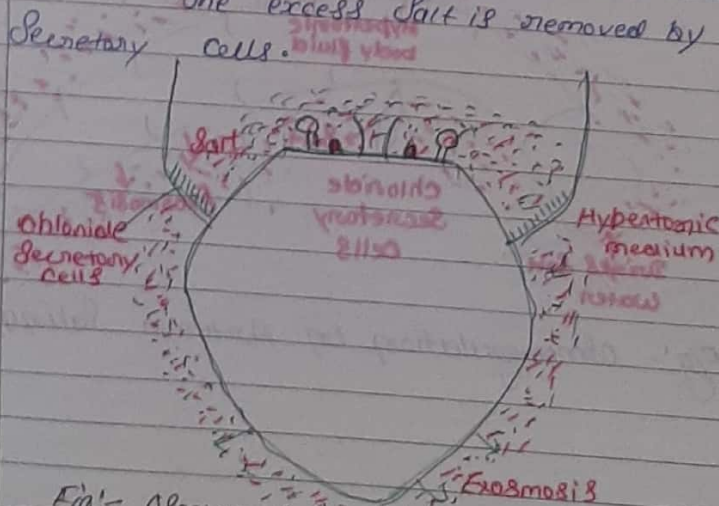 the excess salt is removed by
Secretary cells.
Salt
Chloride
Secretary
cells
Hypertonic
medium
Exosmosis
Fig:-